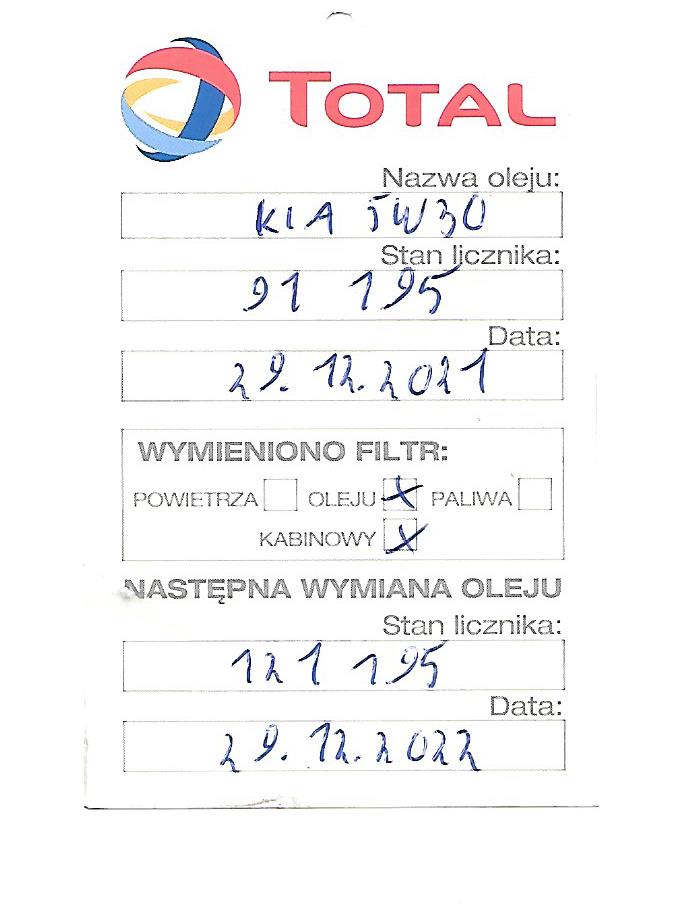 TOTAL
Nazwa oleju:
KIA 5W30
Stan licznika:
91 195
Data:
29.12.2021
WYMIENIONO FILTR:
POWIETRZA OLEJU X PALIWA
KABINOWY X
NASTĘPNA WYMIANA OLEJU
Stan licznika:
121 195
Data:
29.12.2022